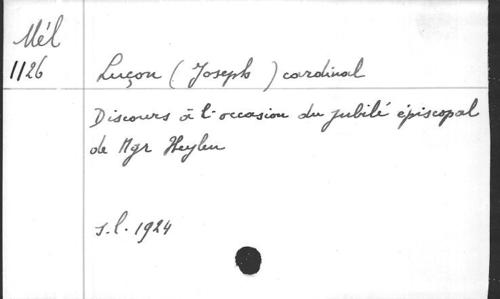 Mél
1126
Luçon (Joseph) cardinal
Discours à l'occasion du jubilé épiscopal
de Mgr Heylen
s.l. 1924